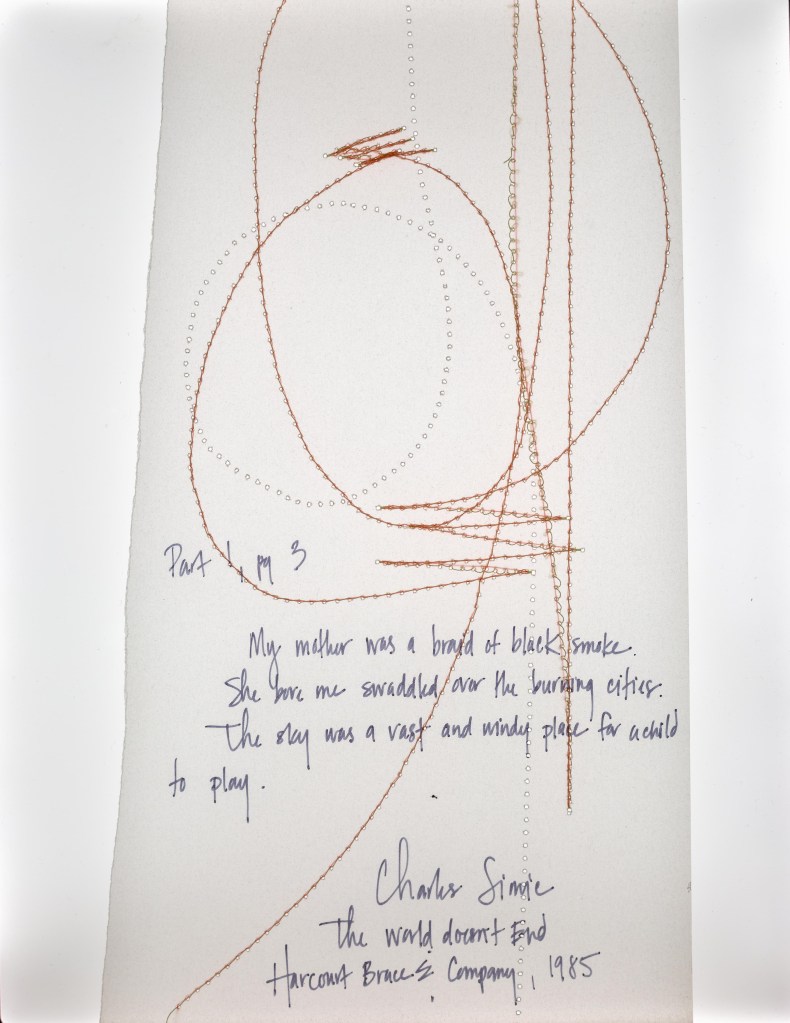 Part 1, pg 3
My mother was a braid of black smoke.
She bore me swaddled over the burning cities.
The sky was a vast and windy place for a child
to play.
Charles Simic
The world doesn't End
Harcourt Brace & Company, 1985